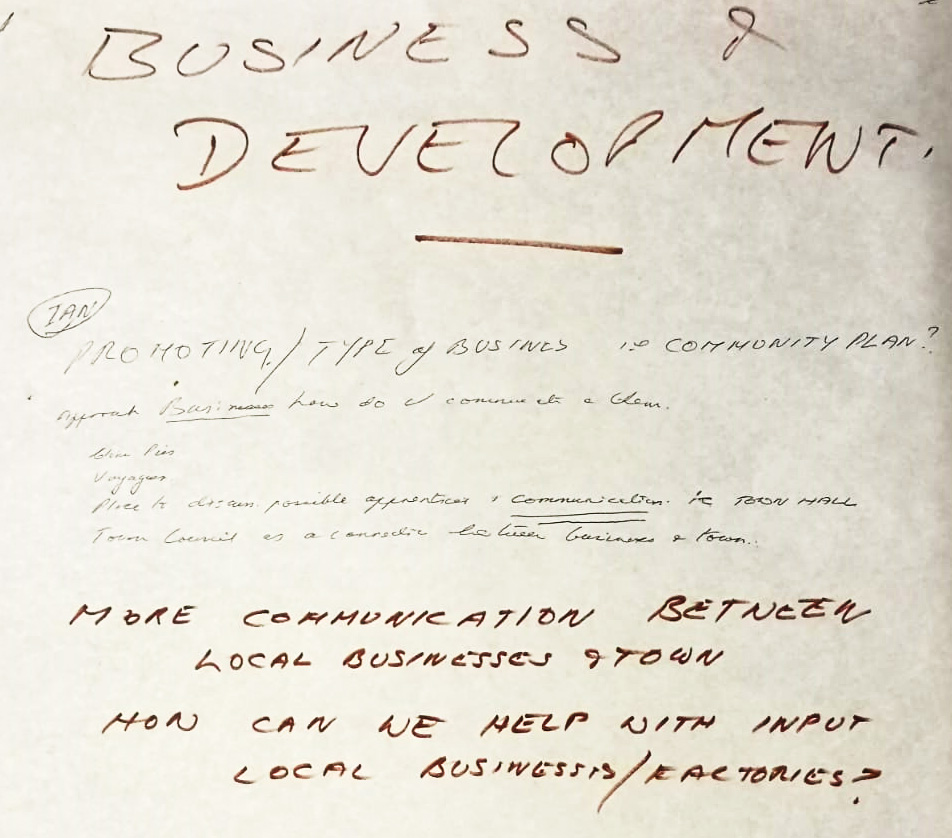 BUSINESS &
DEVELOPMENT.
IAN
PROMOTING / TYPE of BUSINES ie COMMUNITY PLAN?
approach Businesses how do U communicate a them.
Voyages
Place to discuss possible apprentices & communication. ie TOWN HALL
Town Council as a connection between business & town..
MORE COMMUNICATION BETWEEN
LOCAL BUSINESSES & TOWN
HOW CAN WE HELP WITH INPUT
LOCAL BUSINESSIS/FACTORIES?